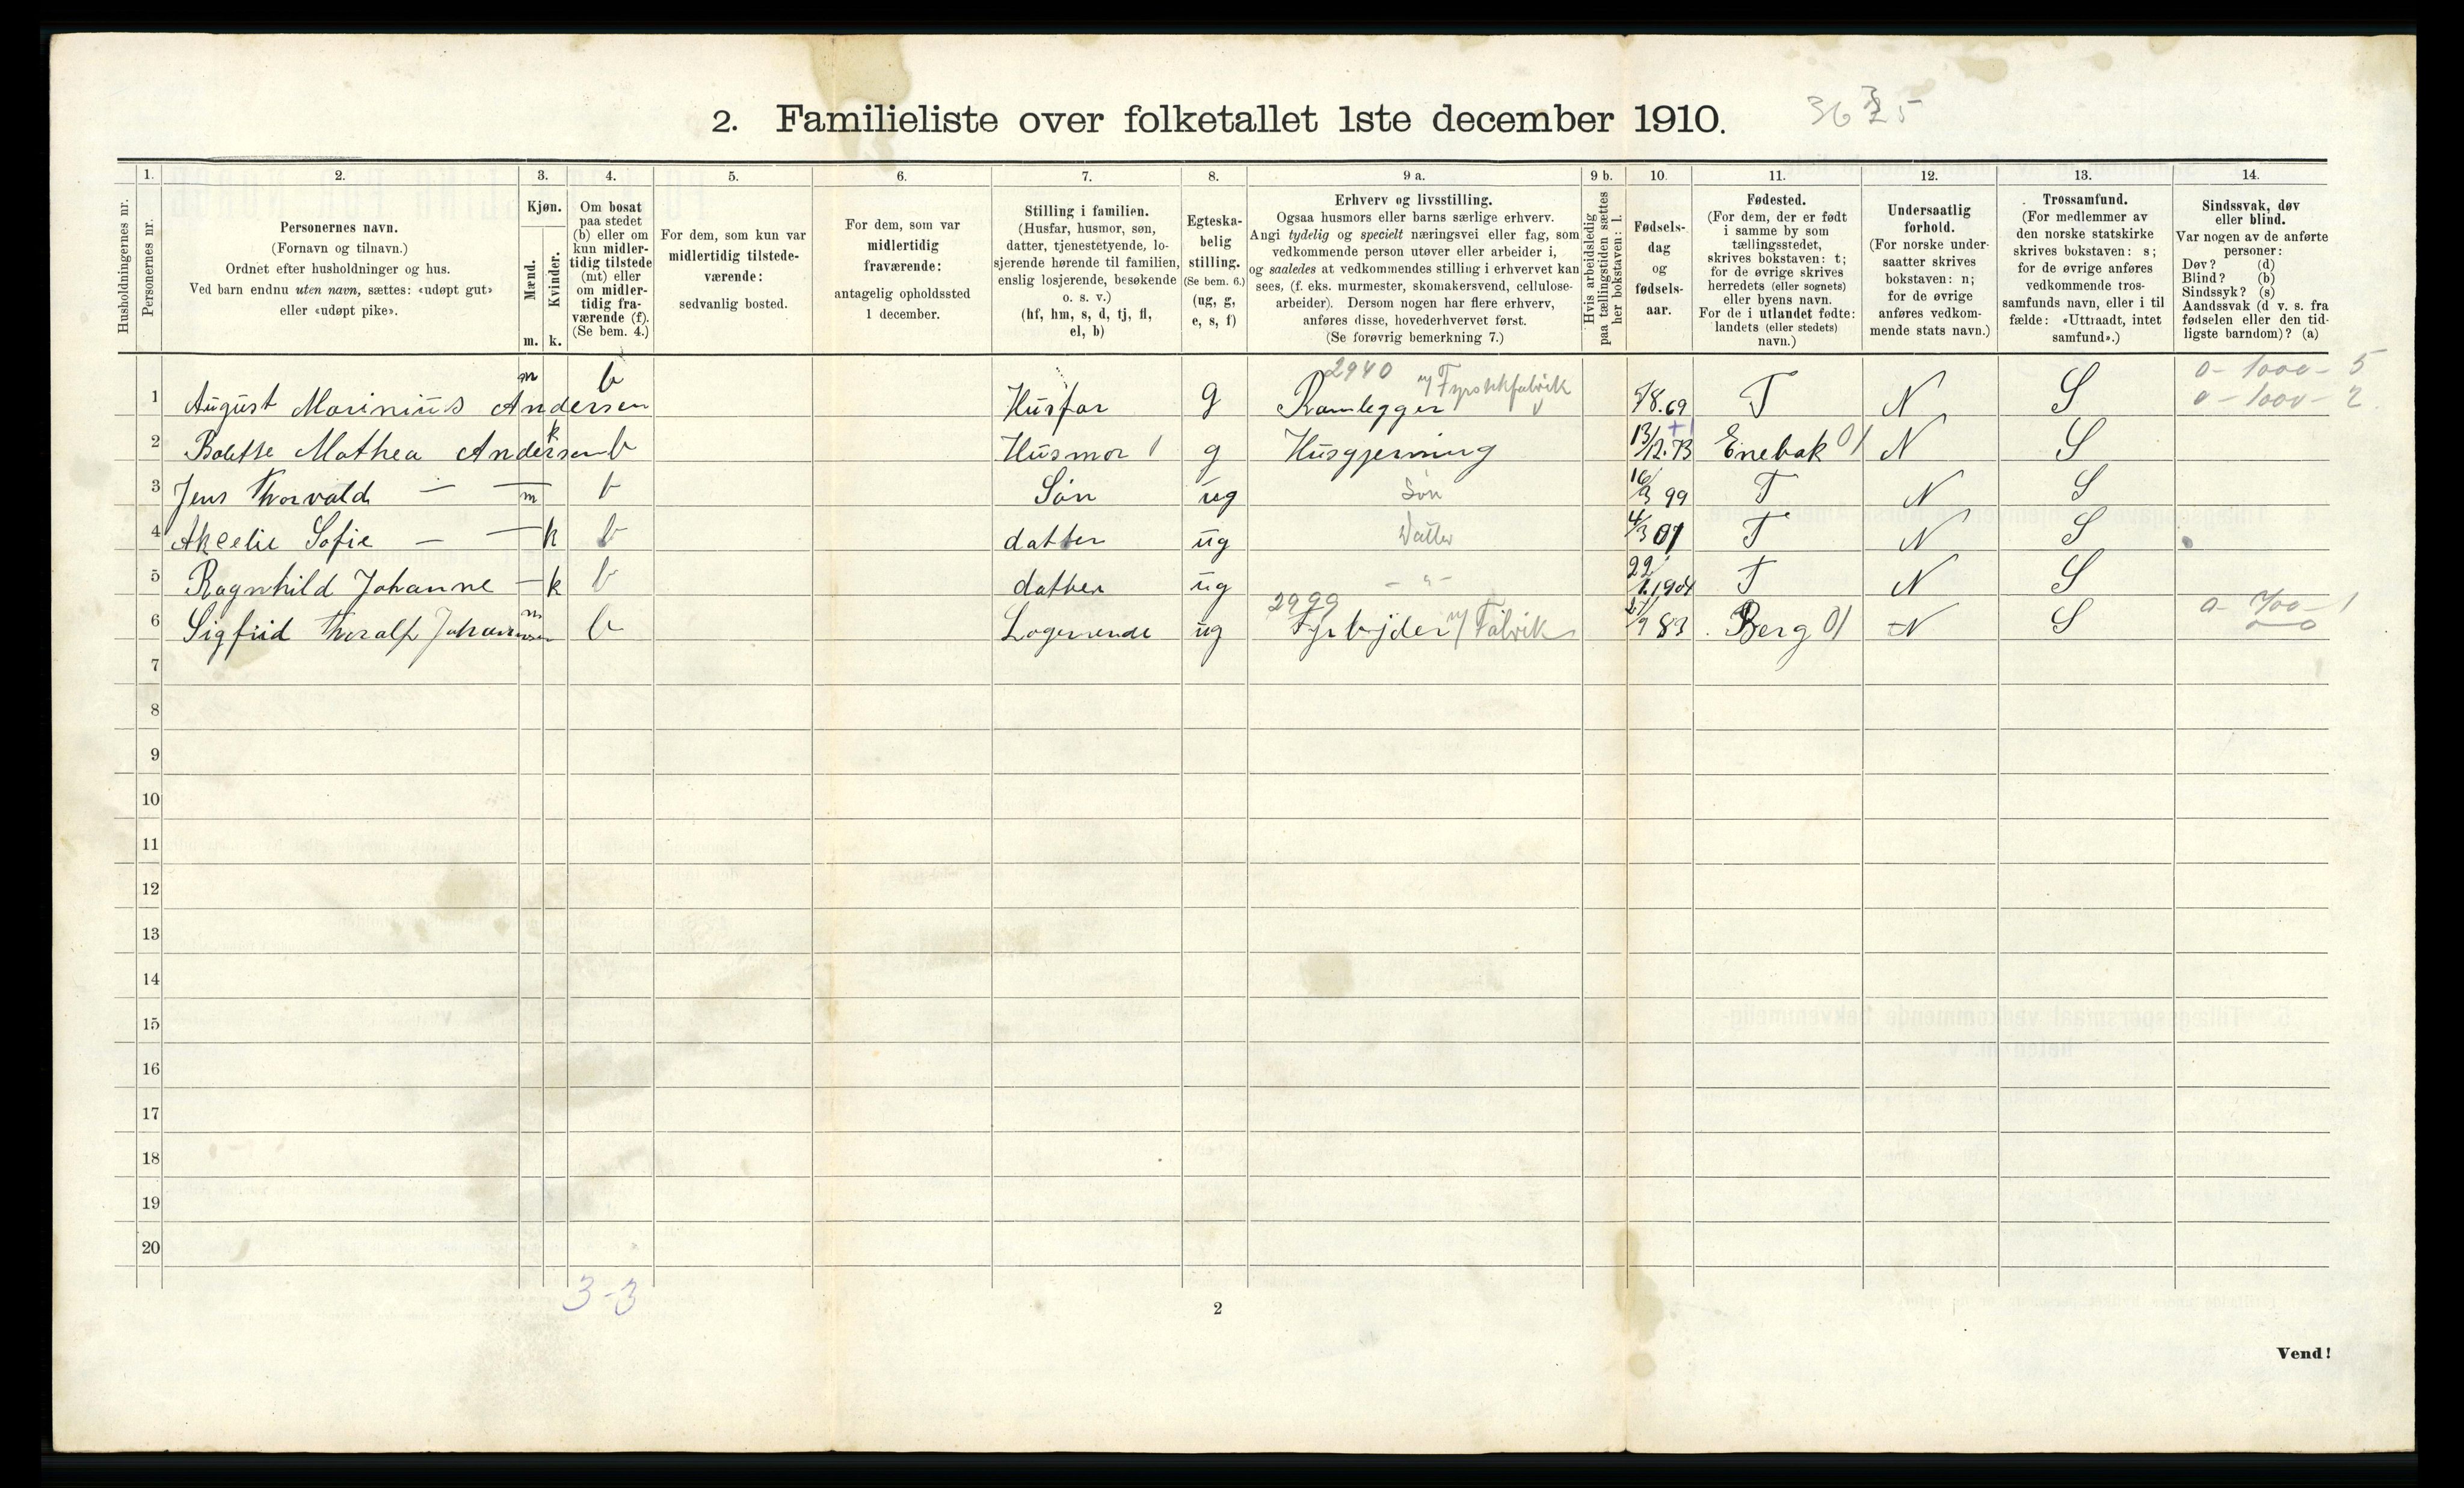 2. Familieliste over folketallet 1ste december 1910.
1. 2. 3. 4. 5. 6. 7. 8. 9 a. 9 b. 10. 11. 12. 13. 14.
Husholdningernes nr.
Personernes nr.
Personernes navn.
(Fornavn og tilnavn.)
Ordnet efter husholdninger og hus.
Ved barn endnu uten navn, sættes: «udøpt gut»
eller «udøpt pike».
Kjøn.
Mænd.
Kvinder.
m. k.
Om bosat
paa stedet
(b) eller om
kun midler-
tidig tilstede
(mt) eller
om midler-
tidig fra-
værende (f).
(Se bem. 4.)
For dem, som kun var
midlertidig tilstede-
værende:
sedvanlig bosted.
For dem, som var
midlertidig
fraværende:
antagelig opholdssted
1 december.
Stilling i familien.
(Husfar, husmor, søn,
datter, tjenestetyende, lo-
sjerende hørende til familien,
enslig losjerende, besøkende
o. s. v.)
(hf, hm, s, d, tj, fl,
el, b)
Egteska-
belig
stilling.
(Se bem. 6.)
(ug, g,
e, s, f)
Erhverv og livsstilling.
Ogsaa husmors eller barns særlige erhverv.
Angi tydelig og specielt næringsvei eller fag, som
vedkommende person utøver eller arbeider i,
og saaledes at vedkommendes stilling i erhvervet kan
sees, (f. eks. murmester, skomakersvend, cellulose-
arbeider). Dersom nogen har flere erhverv,
anføres disse, hovederhvervet først.
(Se forøvrig bemerkning 7.)
Hvis arbeidsledig
paa tællingstiden sættes
her bokstaven: l.
Fødsels-
dag
og
fødsels-
aar.
Fødested.
(For dem, der er født
i samme by som
tællingsstedet,
skrives bokstaven: t;
for de øvrige skrives
herredets (eller sognets)
eller byens navn.
For de i utlandet fødte:
landets (eller stedets)
navn.)
Undersaatlig
forhold.
(For norske under-
saatter skrives
bokstaven: n;
for de øvrige
anføres vedkom-
mende stats navn.)
Trossamfund.
(For medlemmer av
den norske statskirke
skrives bokstaven: s;
for de øvrige anføres
vedkommende tros-
samfunds navn, eller i til
fælde: «Uttraadt, intet
samfund».)
Sindssvak, døv
eller blind.
Var nogen av de anførte
personer:
Døv? (d)
Blind? (b)
Sindssyk? (s)
Aandssvak (d v. s. fra
fødselen eller den tid-
ligste barndom)? (a)
2940 0- 1000- 5
1 August Marinius Andersen m b Husfar g Ramlegger /Fyrstikfabrik /8.69 T N S 0 - 1000 - 2
2 Bolette Mathea Andersen k b Husmor g Husgjerning 13/12.73 Enebak 01 N S
3 Jens Thorvald — — m b Søn ug Søn 16/3 99 T N S
4 Sofie — — k b datter ug Datter 4/3 01 T N S
5 Ragnhild Johanne — k b datter ug - " - 22/1.1904 T N S
2999
6 Sigfrid Thoralf m b Logerende ug Arbejder / Fabrik /9 83 Berg 01 N S 0- 700- 1
7
8
9
10
11
12
13
14
15
16
17
18
19
20
3-3
2
Vend!